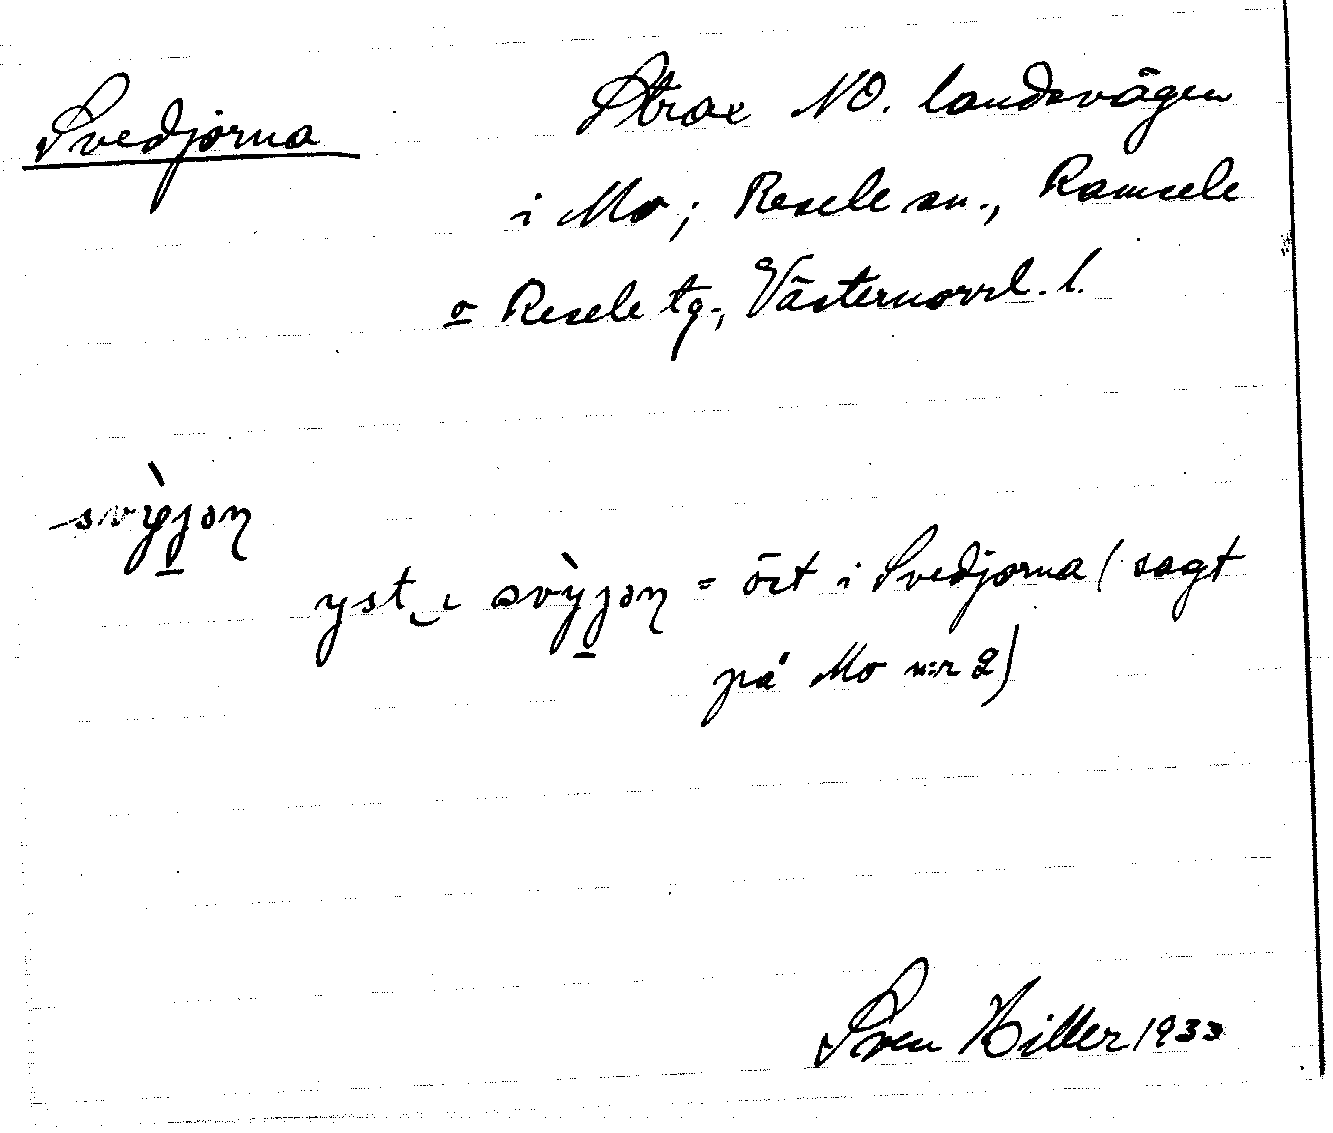 Svedjorna
Strax NO. landsvägen
i Mo; Resele sn., Ramsele
o Resele tg., Västernorrl. l.
svỳ̠jən
yst ɩ svỳ̠jən = öst i Svedjorna (sagt
på Mo n:r 2)
Sven Hiller 1933